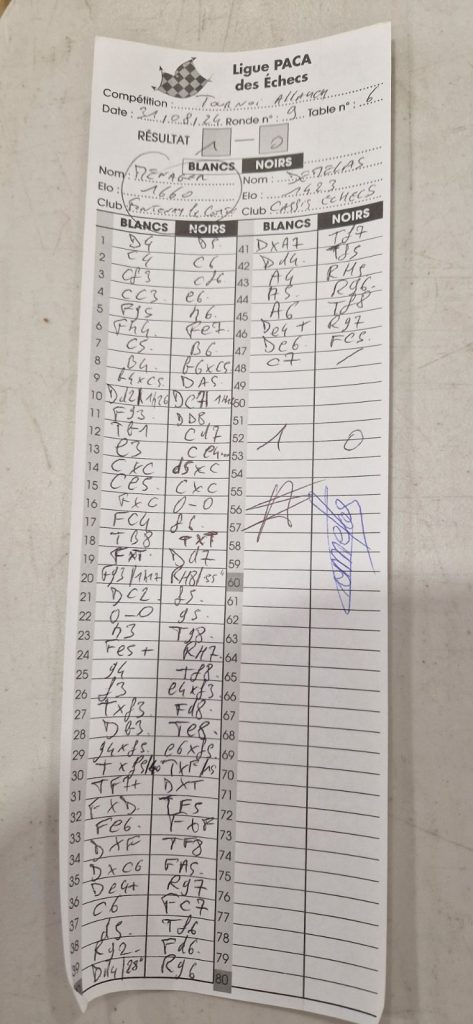 Ligue PACA
des Échecs
Compétition : TOURNOI ALLAUCH
Date : 31/08/24 Ronde n° : 9 Table n° : 6
RÉSULTAT 1 — 0
BLANCS NOIRS
Nom : MENAGER Nom : DEMELAS
Elo : 1660 Elo : 1423
Club Club CASSIS ECHECS
BLANCS NOIRS BLANCS NOIRS
1 D4 D5 41 DxA7 Tf7
2 C4 C6 42 Dd4 Tf5
3 Cf3 Cf6 43 A4 RH5
4 CC3 e6 44 A5 Rg6
5 Fg5 h6 45 A6 Tf8
6 Fh4 Fe7 46 De4+ Rg7
7 C5 B6 47 Dc6 FC5
8 B4 b6xc5 48 C7
9 b4xc5 DA5 49
10 Dd2 1h26 DC7 50
11 Fg3 DD8 51
12 Tb1 Cd7 52 1 0
13 e3 Ce4 53
14 CxC d5xC 54
15 Ce5 CxC 55
16 FxC 0-0 56
17 FC4 f6 57
18 TB8 TxT 58
19 FxT Dd7 59
20 Fg3/1h17 RH8/55" 60
21 DC2 f5 61
22 0-0 g5 62
23 h3 Tg8 63
24 Fe5+ RH7 64
25 g4 Tf8 65
26 f3 e4xf3 66
27 Txf3 Fd8 67
28 Db3 Te8 68
29 g4xf5 e6xf5 69
30 Txf5 TxF 70
31 TF7+ DXT 71
32 FXD TF5 72
33 Fe6 FXF 73
34 DXF TF8 74
35 DxC6 FA5 75
36 De4+ Rg7 76
37 C6 FC7 77
38 d5 Tf6 78
39 Rg2 Fd6 79
Dd4 28" Rg6 80